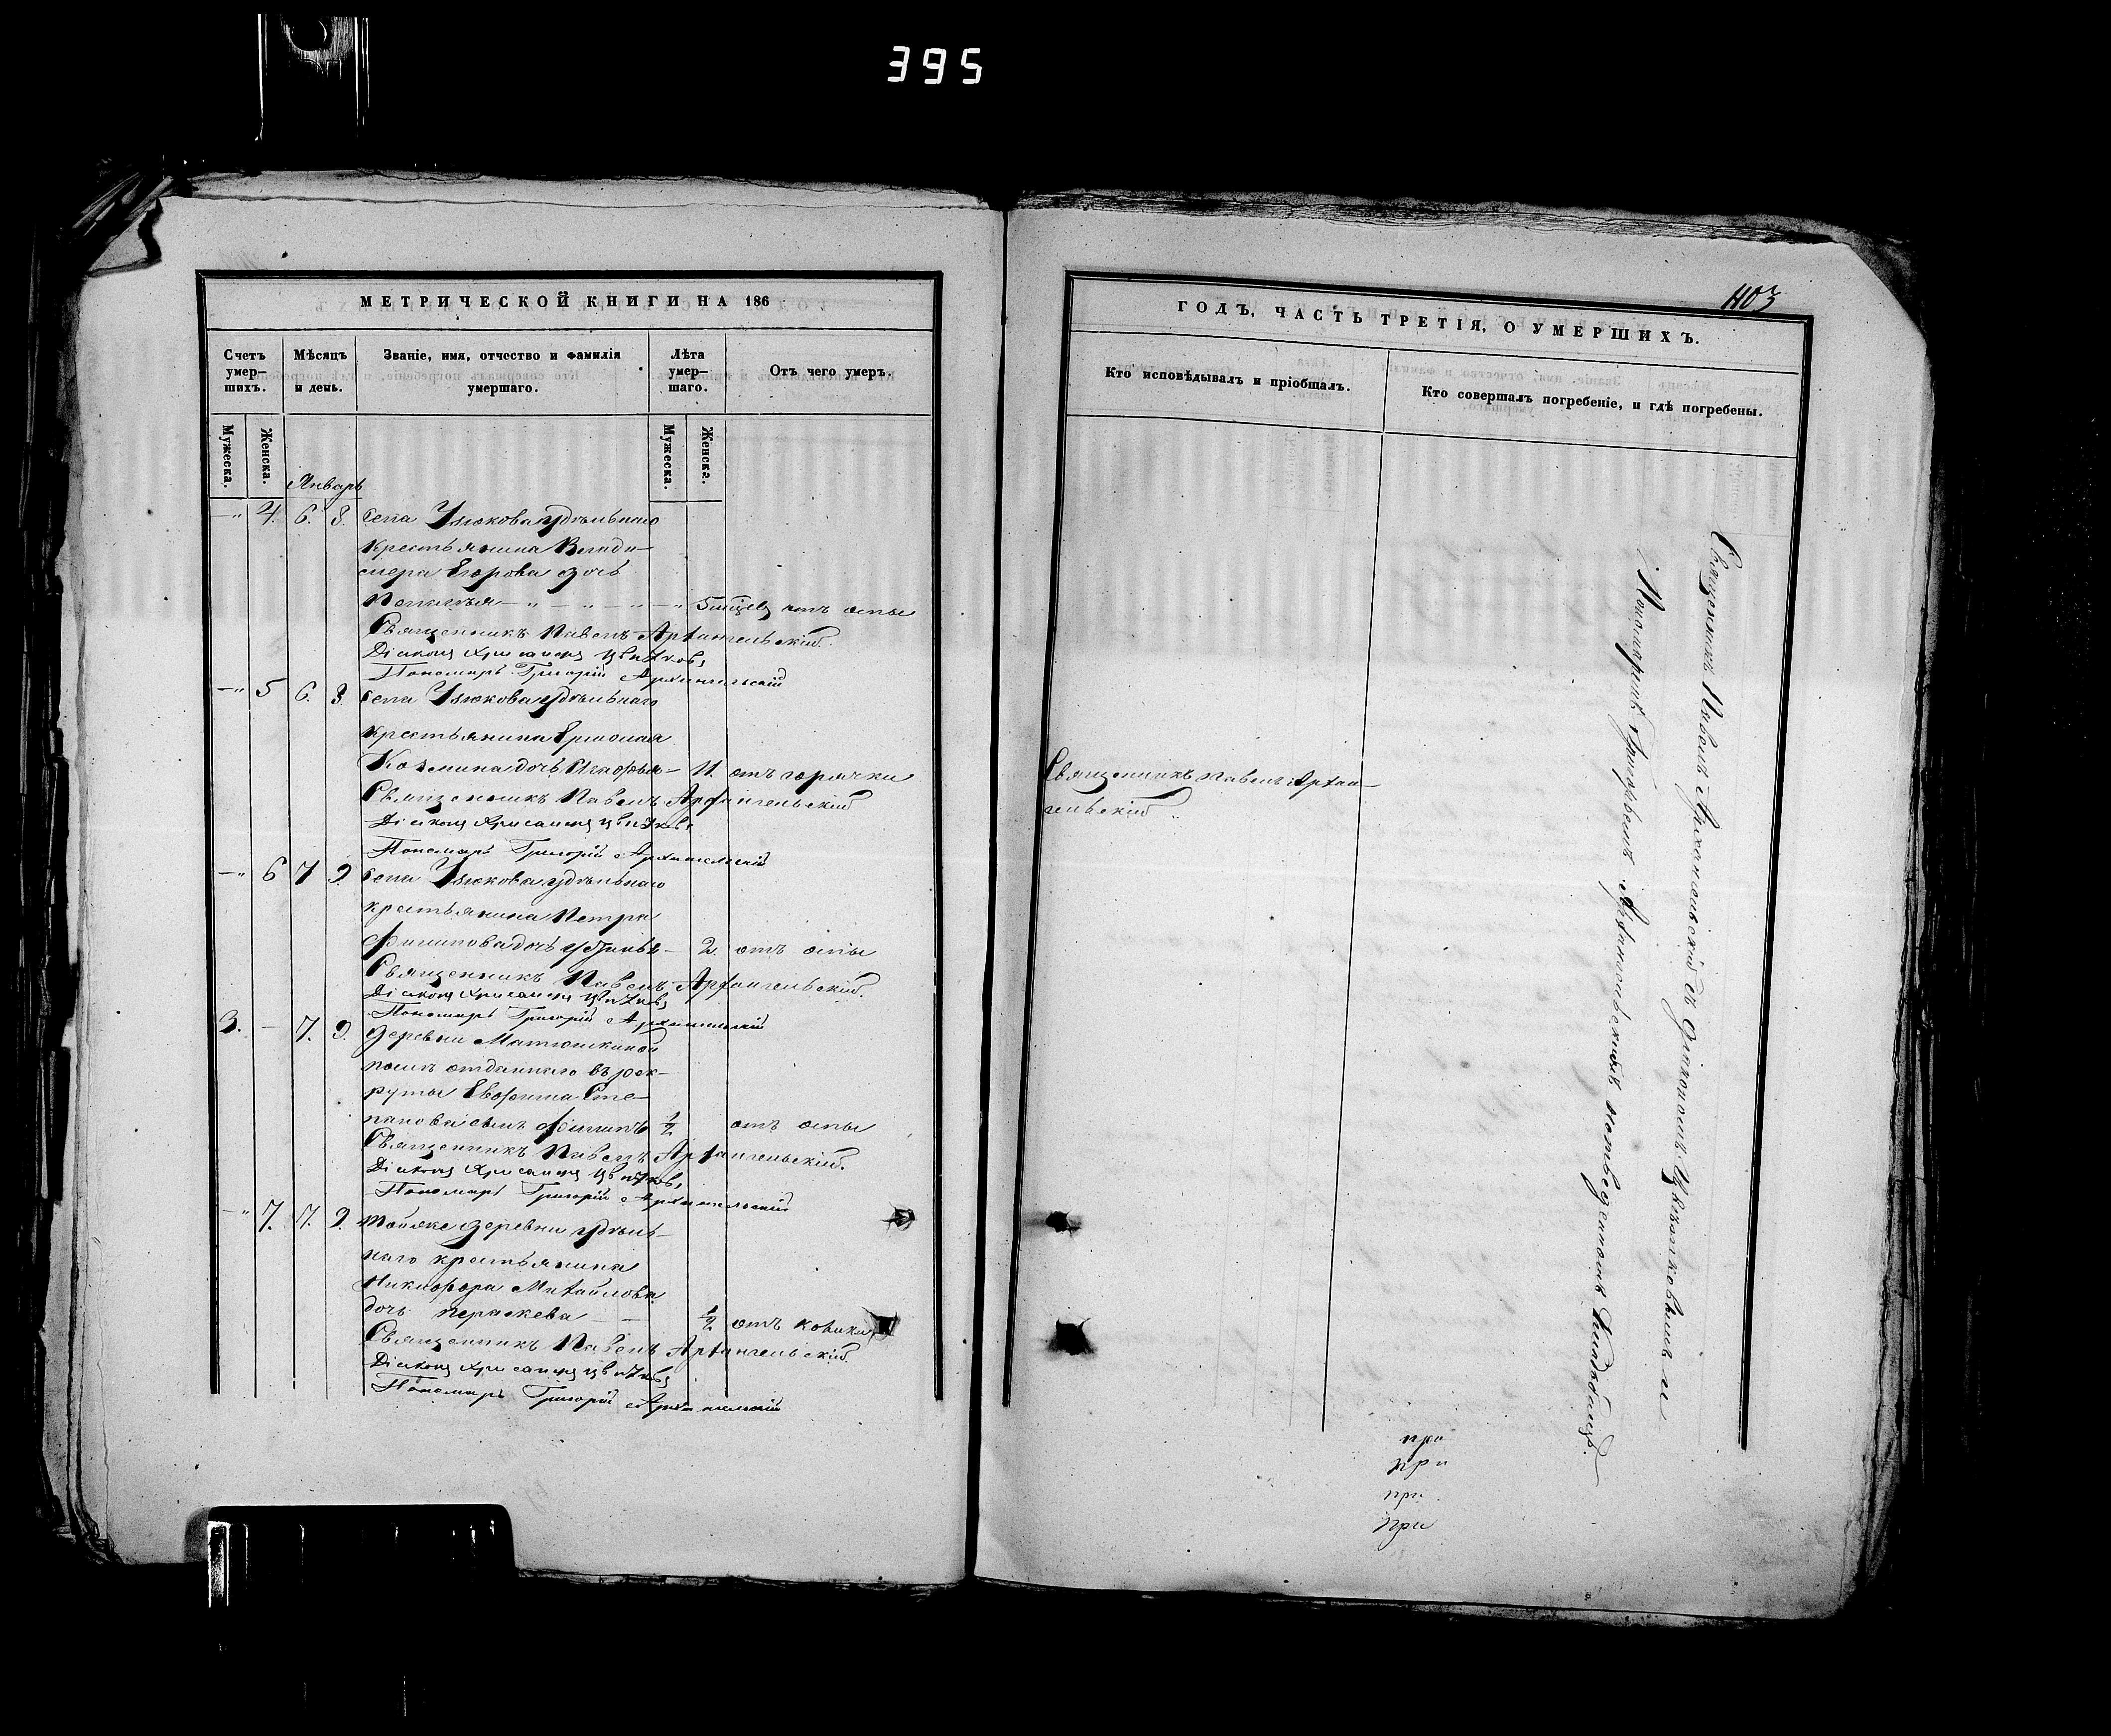 395
МЕТРИЧЕСКОЙ КНИГИ НА 186
Счетъ умер-шихъ.
Мѣсяцъ и день.
Званіе, имя, отчество и фамилія умершаго.
Лѣта умер-шаго.
Отъ чего умеръ.
Мужеска.
Женска.
Мужеска.
Женска.
Январь
—„ 4. 6. 8. Села Улюкова удѣльнаго
крестьянина Влади-
мера Егорова дочь
Пелагѣя — „ — „ — „ — „ 5 мѣсец отъ оспы
Священникъ Павелъ Архангельскій.
Діаконъ Хрисанѳъ Цвѣтковъ
Пономарь Григорій Архангельскій
—„ 5 6. 8. Села Улюкова удѣльнаго
крестьянина Ермолая
Козмина дочь Агафья — 11. отъ горячки
Священникъ Павелъ Архангельскій
Діаконъ Хрисанѳъ Цвѣтковъ
Пономарь Григорій Архангельскій
—„ 6 7 9. Села Улюкова удѣльнаго
крестьянина Петра
Филипова дочь Устинья — 2. отъ оспы
Священникъ Павелъ Архангельскій.
Діаконъ Хрисанѳъ Цвѣтковъ
Пономарь Григорій Архангельскій
3. — 7. 9. деревни Матюшкиной
отданнаго въ рек-
руты Евфима Сте-
панова сынъ Филипъ ½ отъ оспы
Священникъ Павелъ Архангельскій.
Діаконъ Хрисанѳъ Цвѣтковъ
Пономарь Григорій Архангельскій
—„ 7. 7. 9. тойже деревни удѣль-
наго крестьянина
Никифора Михайлова
дочь Параскева — — ½ отъ
Священникъ Павелъ Архангельскій.
Діаконъ Хрисанѳъ Цвѣтковъ
Пономарь Григорій Архангельскій
403
ГОДЪ, ЧАСТЬ ТРЕТІЯ, О УМЕРШИХЪ.
Кто исповѣдывалъ и пріобщалъ.
Кто совершалъ погребеніе, и гдѣ погребены.
Священникъ Павелъ Архан-
гельскій
Священникъ Павелъ Архангельскій съ діакономъ Цвѣтковымъ и
Пономаремъ Григорьемъ Архангельскимъ на отведенномъ кладбищѣ.
при
при
при
при